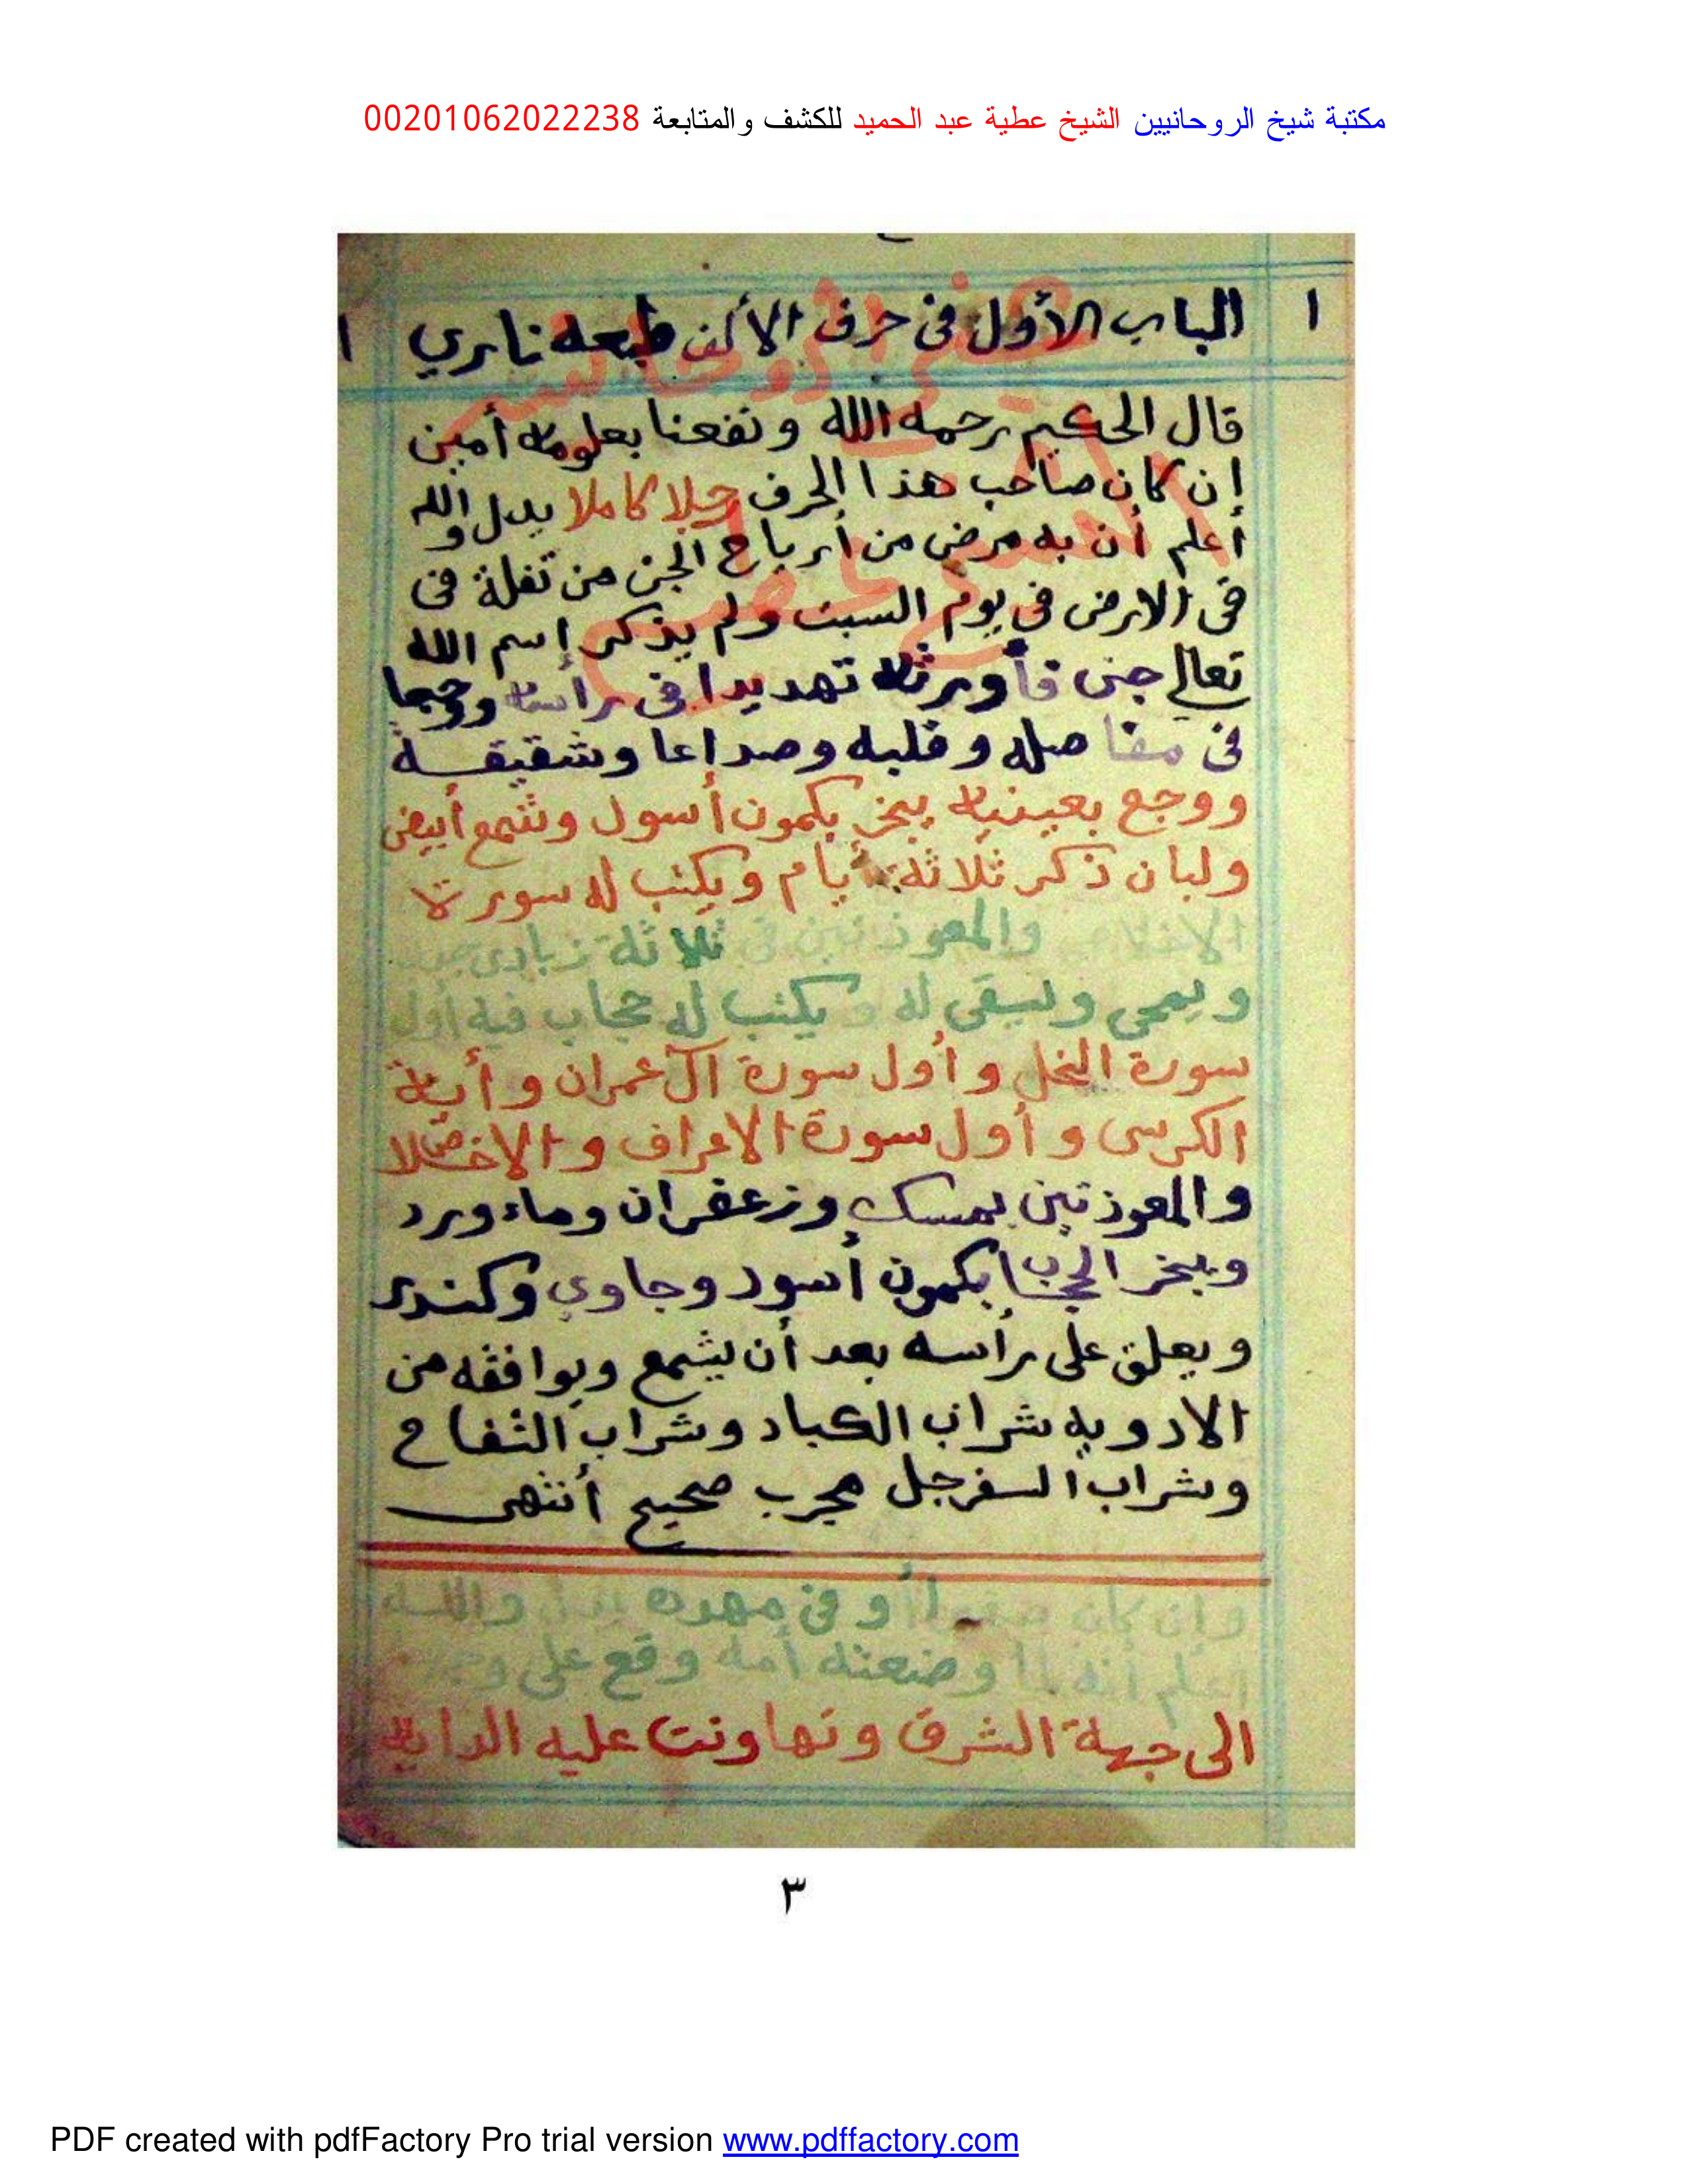 مكتبة شيخ الروحانيين الشيخ عطية عبد الحميد للكشف والمتابعة 00201062022238
١ الباب الأول فى حرف الألف طبعه نارى ١
قال الحكيم رحمه الله ونفعنا بعلومه أمين
إن كان صاحب هذا الحرف رجلا كاملا يدل والله
أعلم أن به مرض من أرياح الجن من تفلة فى
فى الارض فى يوم السبت ولم يذكر إسم الله
تعالى جنى فأورثه تهديدا فى رأسه ووجعا
فى مفاصله وقلبه وصداعا وشقيقة
ووجع بعينيه يبخر بكمون أسول وشمع أبيض
ولبان ذكر ثلاثة أيام ويكتب له سورة
الاخلاص والمعوذتين فى ثلاثة زبادى
ويمحى ويسقى له ويكتب له حجاب فيه أول
سورة النحل وأول سورة آل عمران وأية
الكرسى وأول سورة الاعراف والاخلاص
والمعوذتين بمسك وزعفران وماء ورد
ويبخر الحجاب بكمون أسود وجاوي وكندر
ويعلق على رأسه بعد أن يشمع ويوافقه من
الادويه شراب الكباد وشراب التفاح
وشراب السفرجل مجرب صحيح أنتهى
وإن كان أو فى مهده يدل والله
أعلم أنه لما وضعته أمه وقع على
الى جهة الشرق وتهاونت عليه الدايه
٣
PDF created with pdfFactory Pro trial version www.pdffactory.com